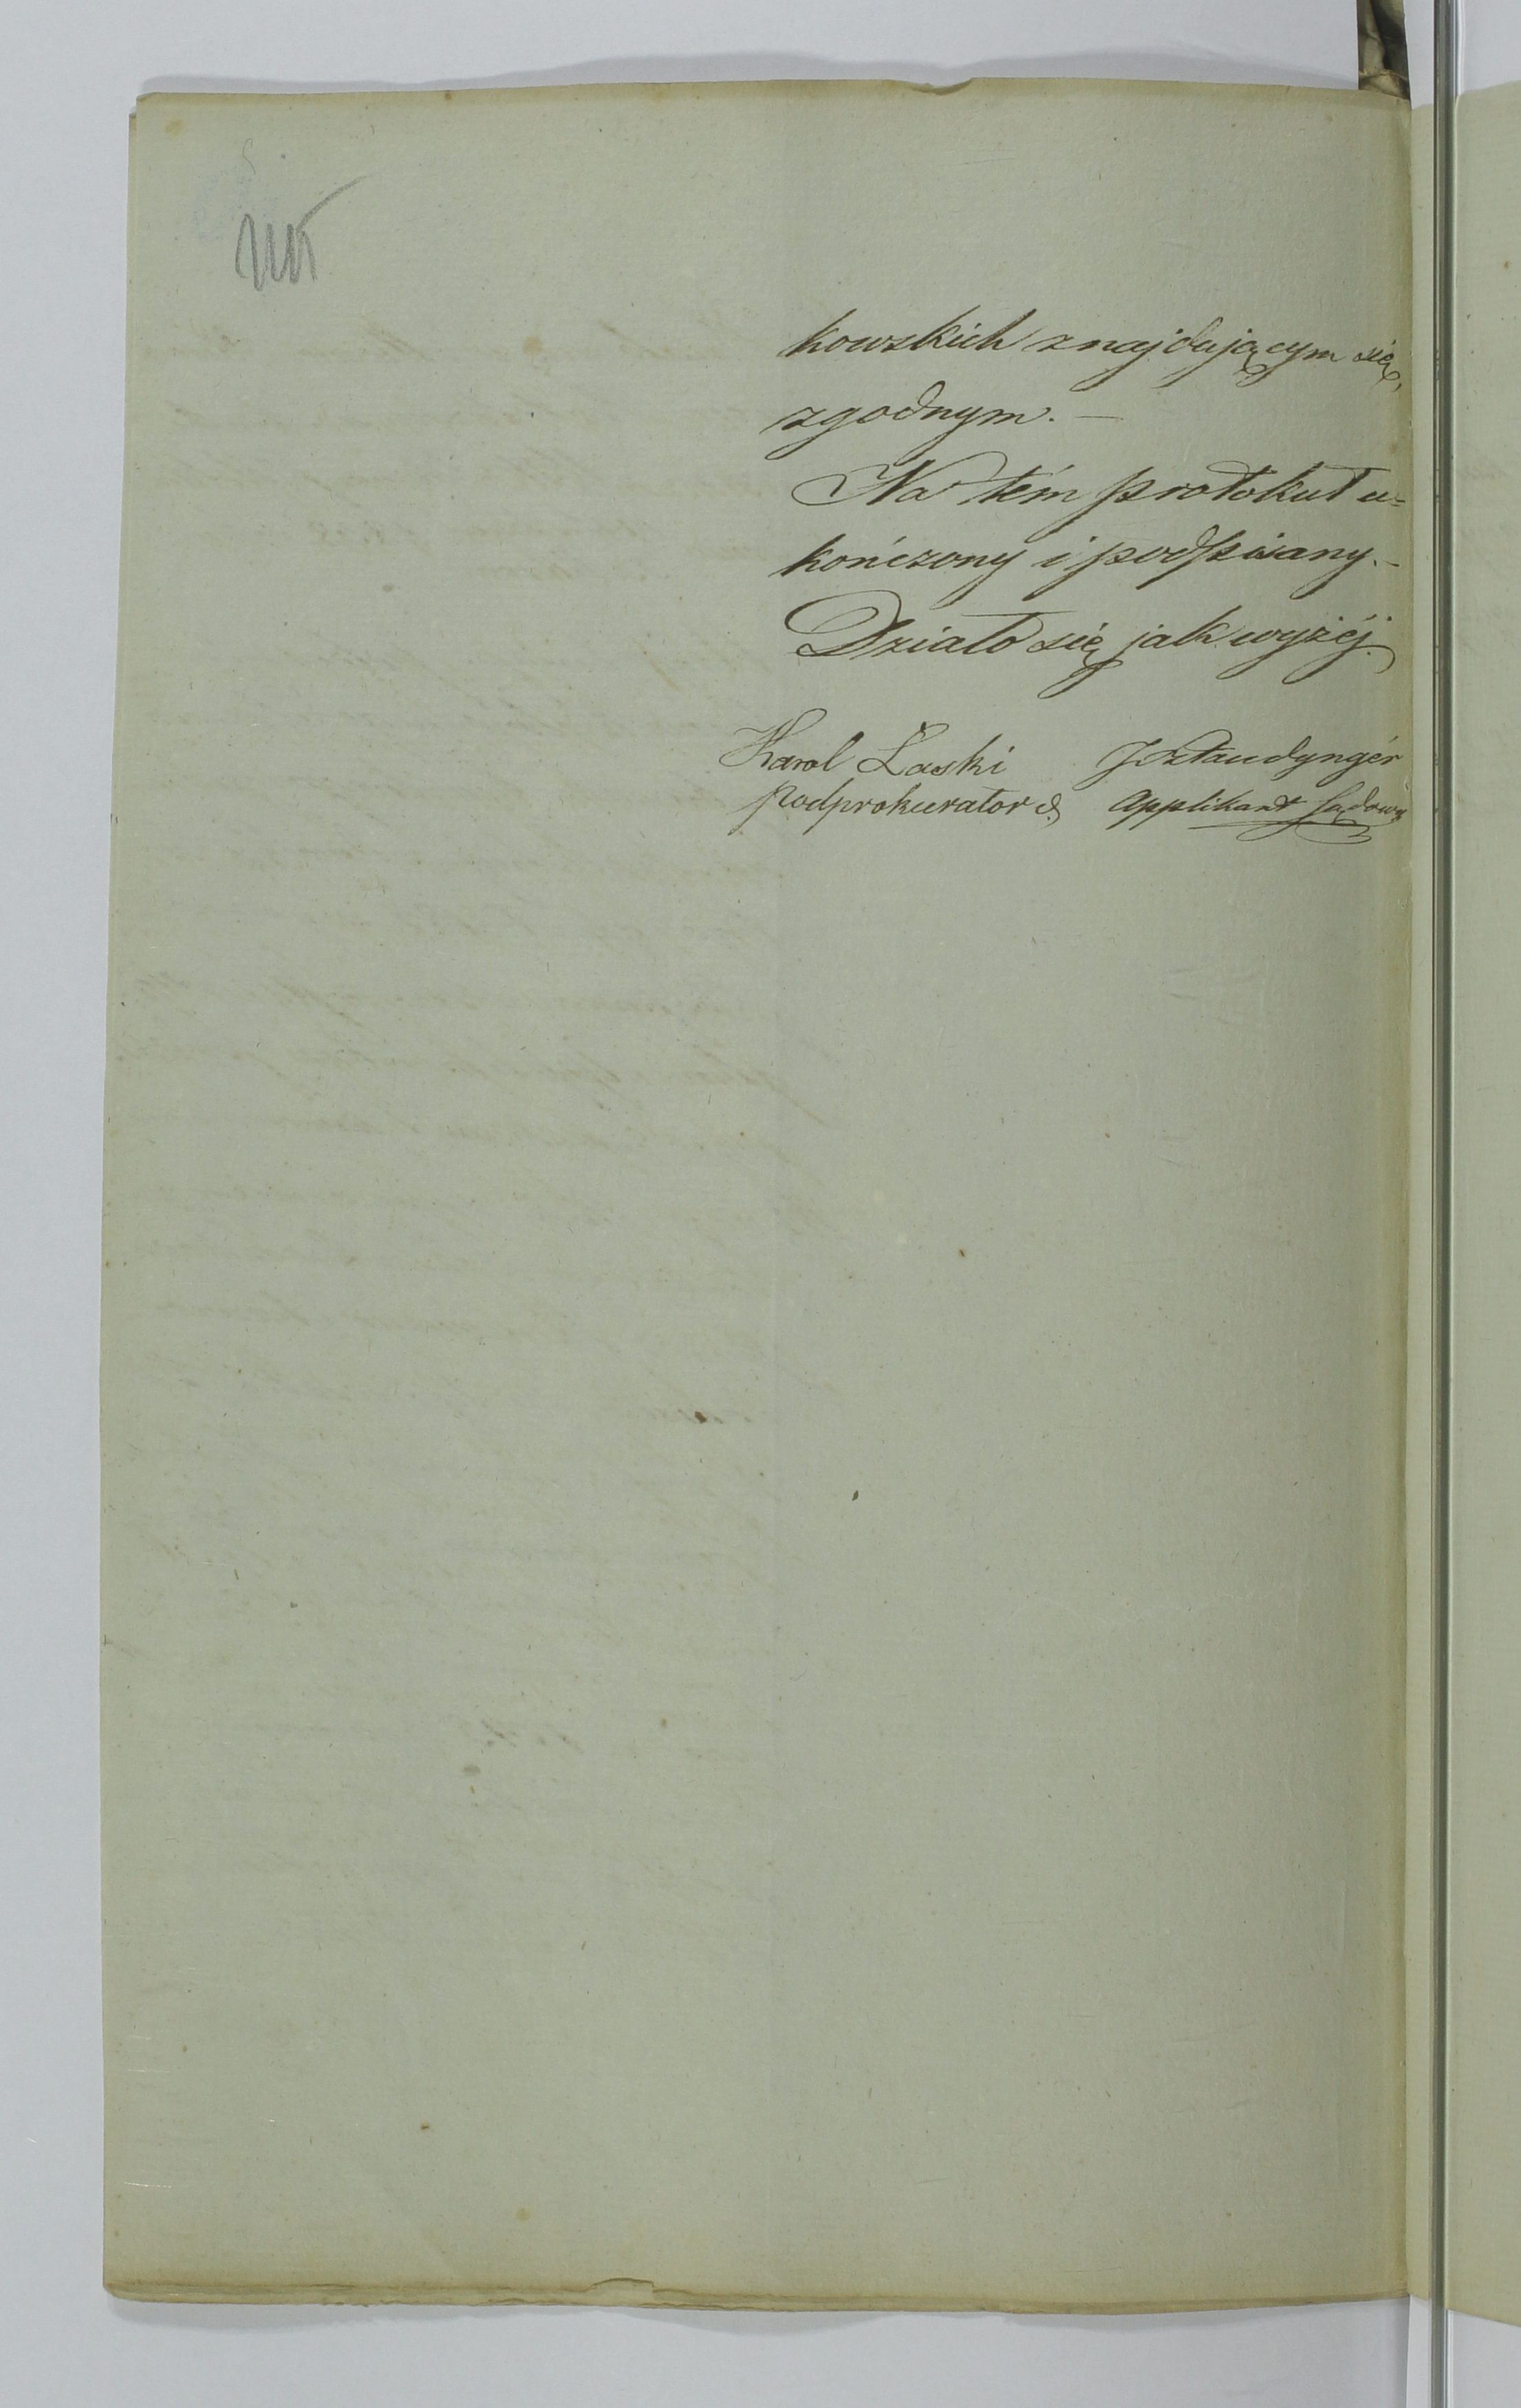 kowskich znajdującym się,
zgodnym. —
Na tém protokuł u=
kończony i podpisany. -
Działo się jak wyżéj.
Karol Łaski JSztaudyngér
Podprokurator Applikant Sądowy